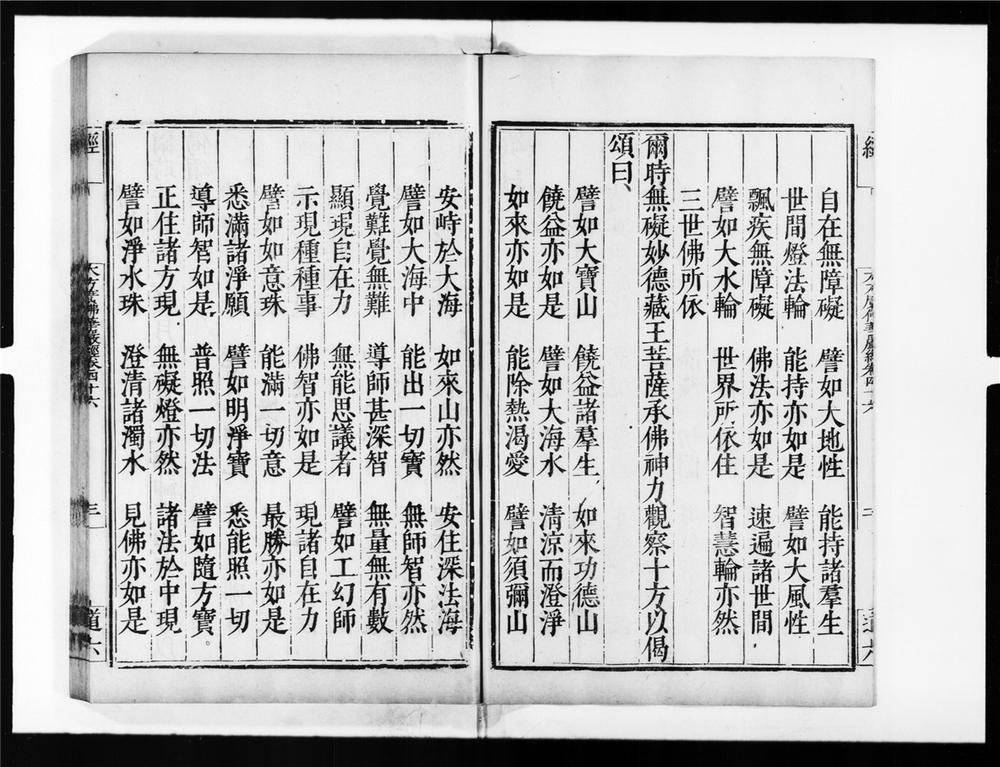 自在無障礙　譬如大地性　能持諸羣生
世間燈法輪　能持亦如是　譬如大風性
飄疾無障礙　佛法亦如是　速遍諸世間
譬如大水輪　世界所依住　智慧輪亦然
三世佛所依
爾時無礙妙德藏王菩薩承佛神力觀察十方以偈
頌曰、
譬如大寶山　饒益諸羣生　如來功德山
饒益亦如是　譬如大海水　清涼而澄淨
如來亦如是　能除熱渴愛　譬如須彌山
安峙於大海　如來山亦然　安住深法海
譬如大海中　能出一切寶　無師智亦然
覺難覺無難　導師甚深智　無量無有數
顯現自在力　無能思議者　譬如工幻師
示現種種事　佛智亦如是　現諸自在力
譬如如意珠　能滿一切意　最勝亦如是
悉滿諸淨願　譬如明淨寶　悉能照一切
導師智如是　普照一切法　譬如隨方寶
正住諸方現　無礙燈亦然　諸法於中現
譬如淨水珠　澄清諸濁水　見佛亦如是
經
大方廣佛華嚴經卷四十六
三
道六